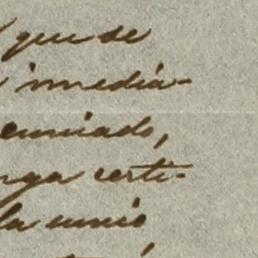 que se
inmedia-
enunciado,
nga certi-
la unió